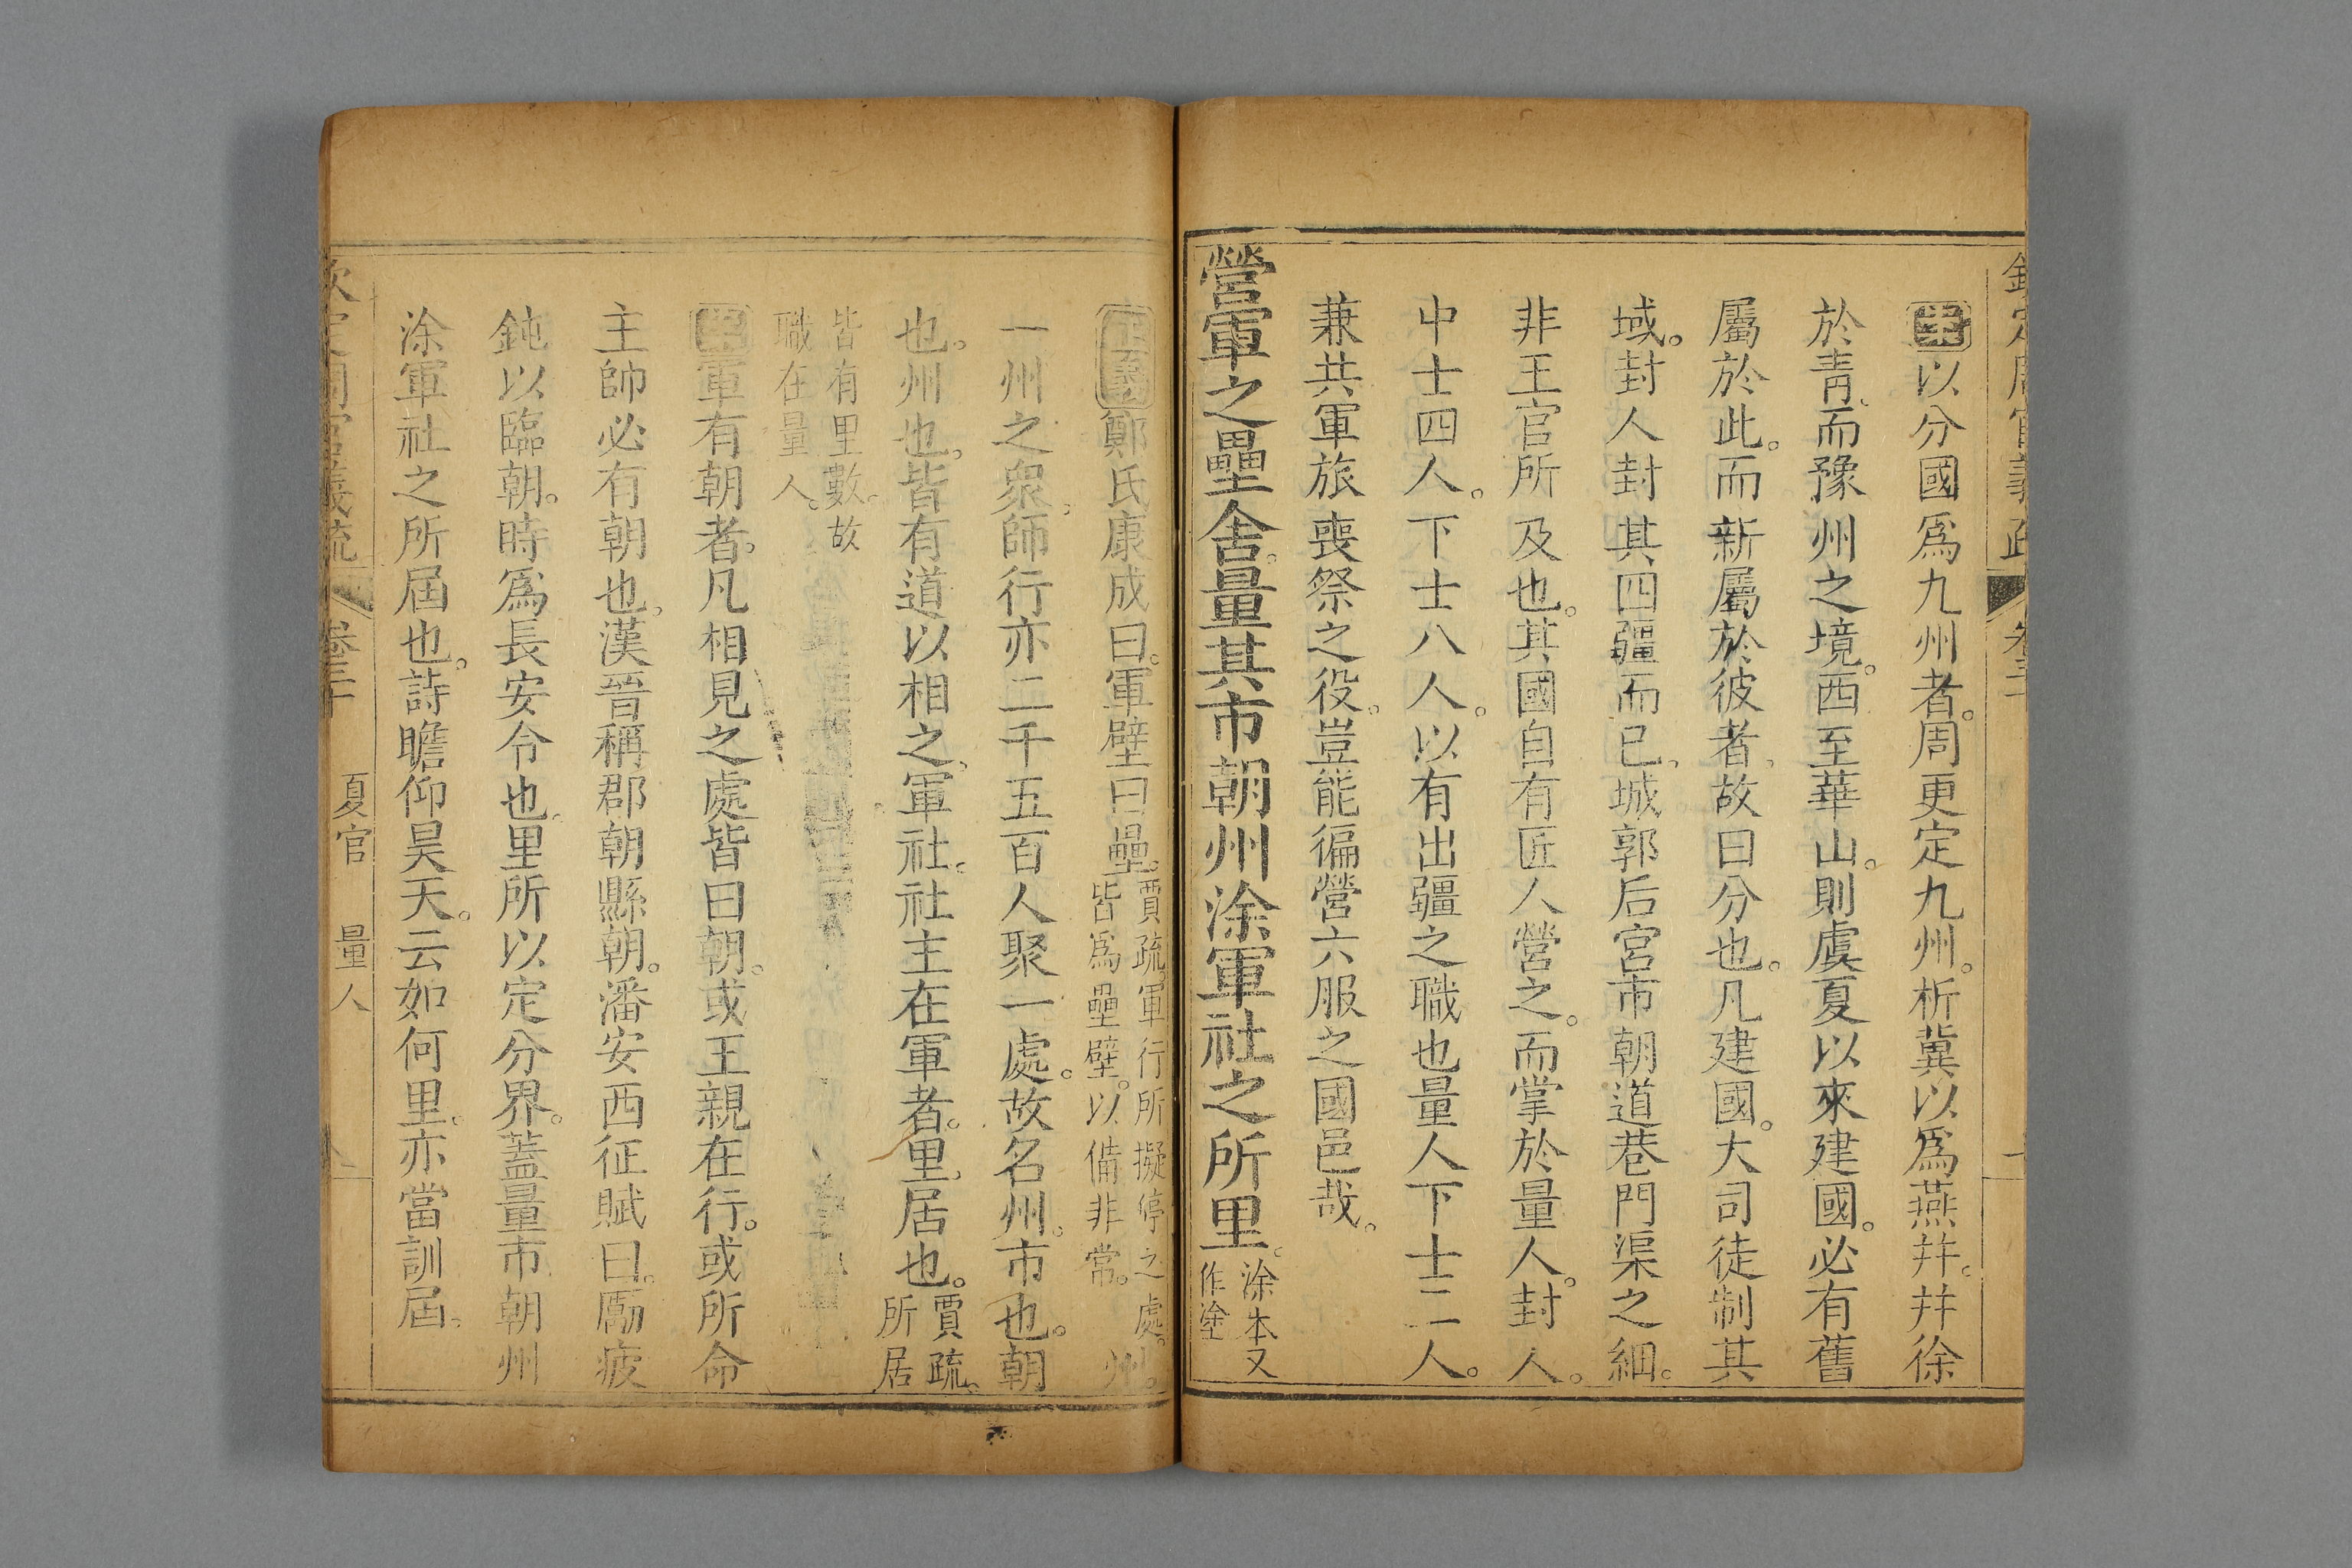 欽定周官義疏 卷三十
案以分國爲九州者。周更定九州。析冀以爲燕幷。幷徐
於靑。而豫州之境。西至華山。則虞夏以來建國。必有舊
屬於此。而新屬於彼者。故曰分也。凡建國。大司徒制其
域。封人封其四疆而已。城郭后宮市朝道巷門渠之細。
非王官所及也。其國自有匠人營之。而掌於量人。封人。
中士四人。下士八人。以有出疆之職也量人下士二人。
兼共軍旅喪祭之役。豈能徧營六服之國邑哉。
營軍之壘舍。量其市朝州涂軍社之所里。涂本又
作塗
正義鄭氏康成曰。軍壁曰壘。賈疏。軍行所擬停之處。
皆爲壘壁。以備非常。州。
一州之衆。師行亦二千五百人聚一處。故名州。市也。朝
也。州也。皆有道以相之。軍社。社主在軍者。里。居也。賈疏。
所居
皆有里數。故
職在量人。
案軍有朝者。凡相見之處皆曰朝。或王親在行。或所命
主帥必有朝也。漢晉稱郡朝縣朝。潘安西征賦曰。勵疲
鈍以臨朝。時爲長安令也。里所以定分界。蓋量市朝州
涂軍社之所屆也。詩瞻仰昊天。云如何里。亦當訓屆。
欽定周官義疏 卷三十 夏官 量人